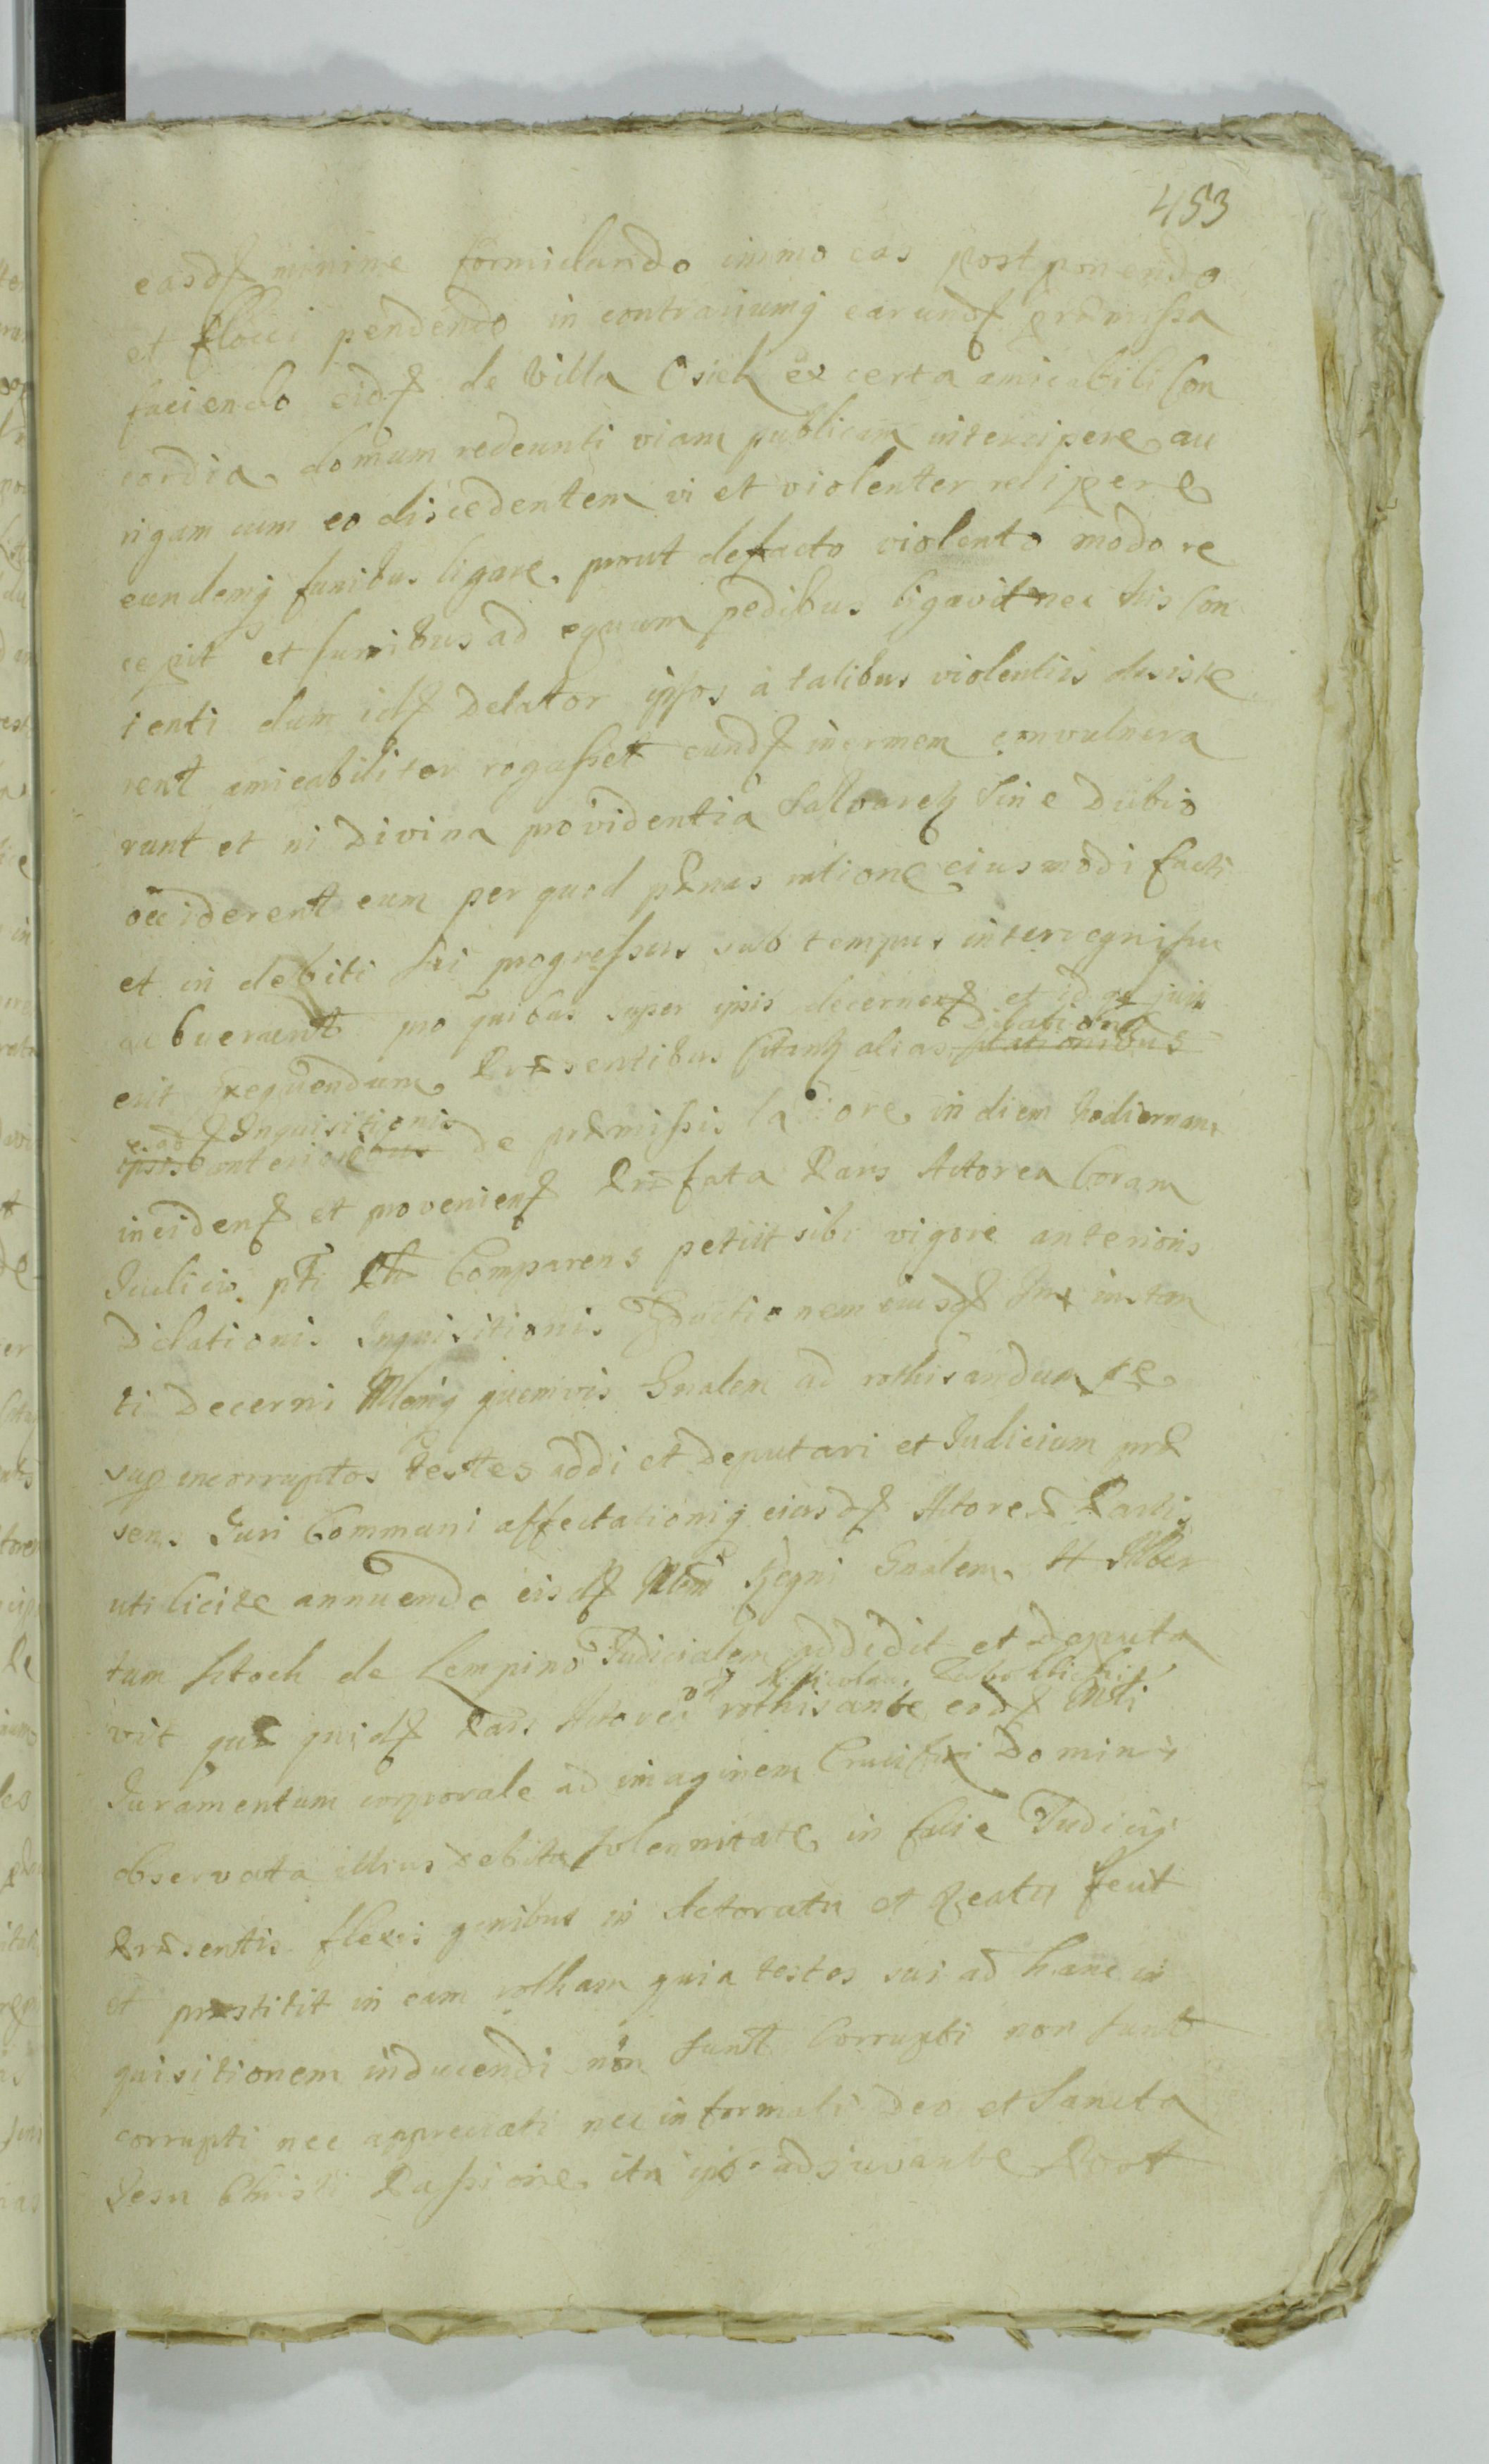 453
easdem minime formidando immo eas postponendo
et flocci pendendo in contrariumq earundem præmissa
faciendo eidem de Villa Osiek ex certa amicabili Con
cordia domum redeunti viam publicam intercipere au
rigam cum eo discedentem vi et violenter recipere
eundemq funibus ligare, prout defacto violento modo re
cepit et funibus ad equum pedibus ligavit nec his Con
tenti dum idem Delator ipsos a talibus violentiis desiste
rent amicabiliter rogasset eundem inermem convulnera
runt et ni Divina providentia salvaretur sine Dubio
occiderent eum per quod pænas ratione eiusmodi facti
et in debiti sui progressus sub tempus interregni suc
cubuerunt pro quibus super ipsis decernend et id qd juris
Dilationis
erit exequendum Præsentibus Citantur alias citationibus
eiusd Inquisitionis
ipsis anterioribus de præmissis latiore in diem hodiernam
inciden et provenien Præfata Pars Actorea Coram
Judicio pti Comparens petiit sibi vigore anterioris
Dilationis Inquisitionis Eductionem eiusdem in instan
ti Decerni Mlemq quemvis Gnalem ad rothisandum se
sup incorruptos testes addi et deputari et Judicium præ
sens Juri Communi affectationiq eiusdem Actoreæ Partis
uti licitæ annuendo eisdem Mlem Regni Gnalem et Alber
tum Stoch de Lempino Judicialem addidit et deputa
vit quæ quidem Pars Actorea rothisante eodem Mlti
Juramentum corporale ad imaginem Crucifixi Domini
observata illius debita solennitate in facie Judicij
Præsentis flexis genibus in Actoratu et Reatu fecit
et præstitit in eam rotham quia testes sui ad hanc in
quisitionem inducendi non sunt Corrupti non sunt
corrupti nec appreciati nec informati Deo et Sancta
Jesu Christi Passione ita ipso adjuvante Post